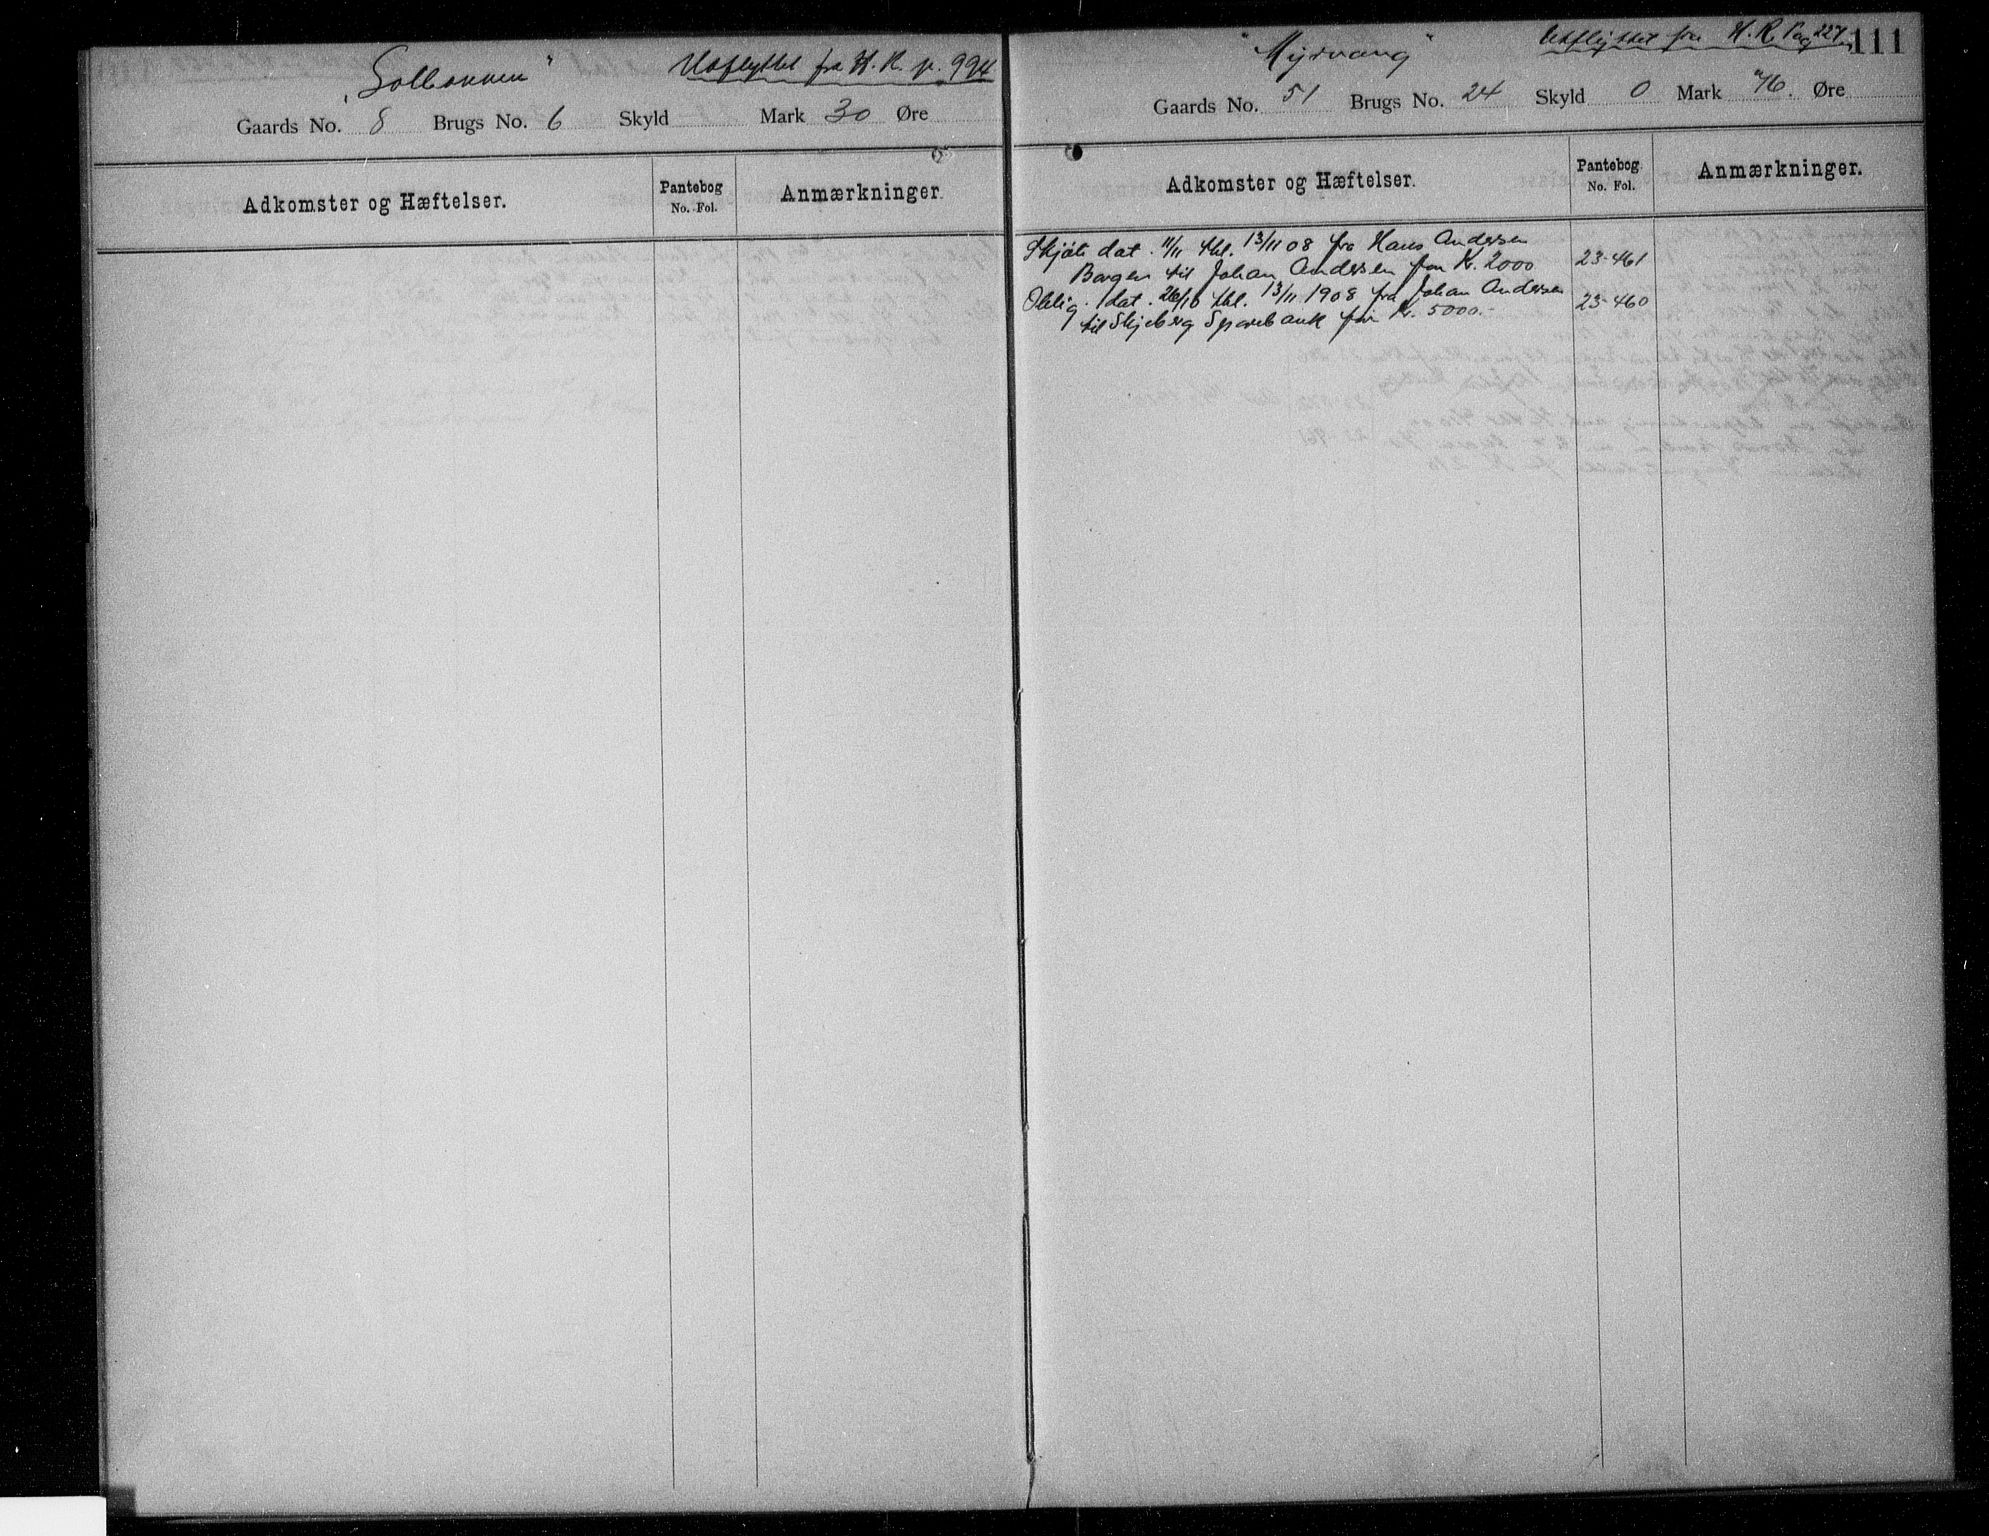 "Solbakken" Udflyttet fra H. R. p. 994
Gaards No. 8 Brugs No. 6 Skyld Mark 30 Øre
Adkomster og Hæftelser.
Pantebog
No. Fol.
Anmærkninger.
"Myrvang" Udflyttet fra H. R. Pag 227. 111
Gaards No. 51 Brugs No. 24 Skyld 0 Mark 76. Øre
Adkomster og Hæftelser.
Pantebog
No. Fol.
Anmærkninger.
Skjöte dat. 11/11 thl. 13/11 08 fra Hans Andersen
Borgen til Johan Andersen for Kr. 2000 23-461
Oblig. dat. 26/10 thl. 13/11 1908 fra Johan Andersen
til Skjeberg Sparebank for Kr. 5000.- 23-460